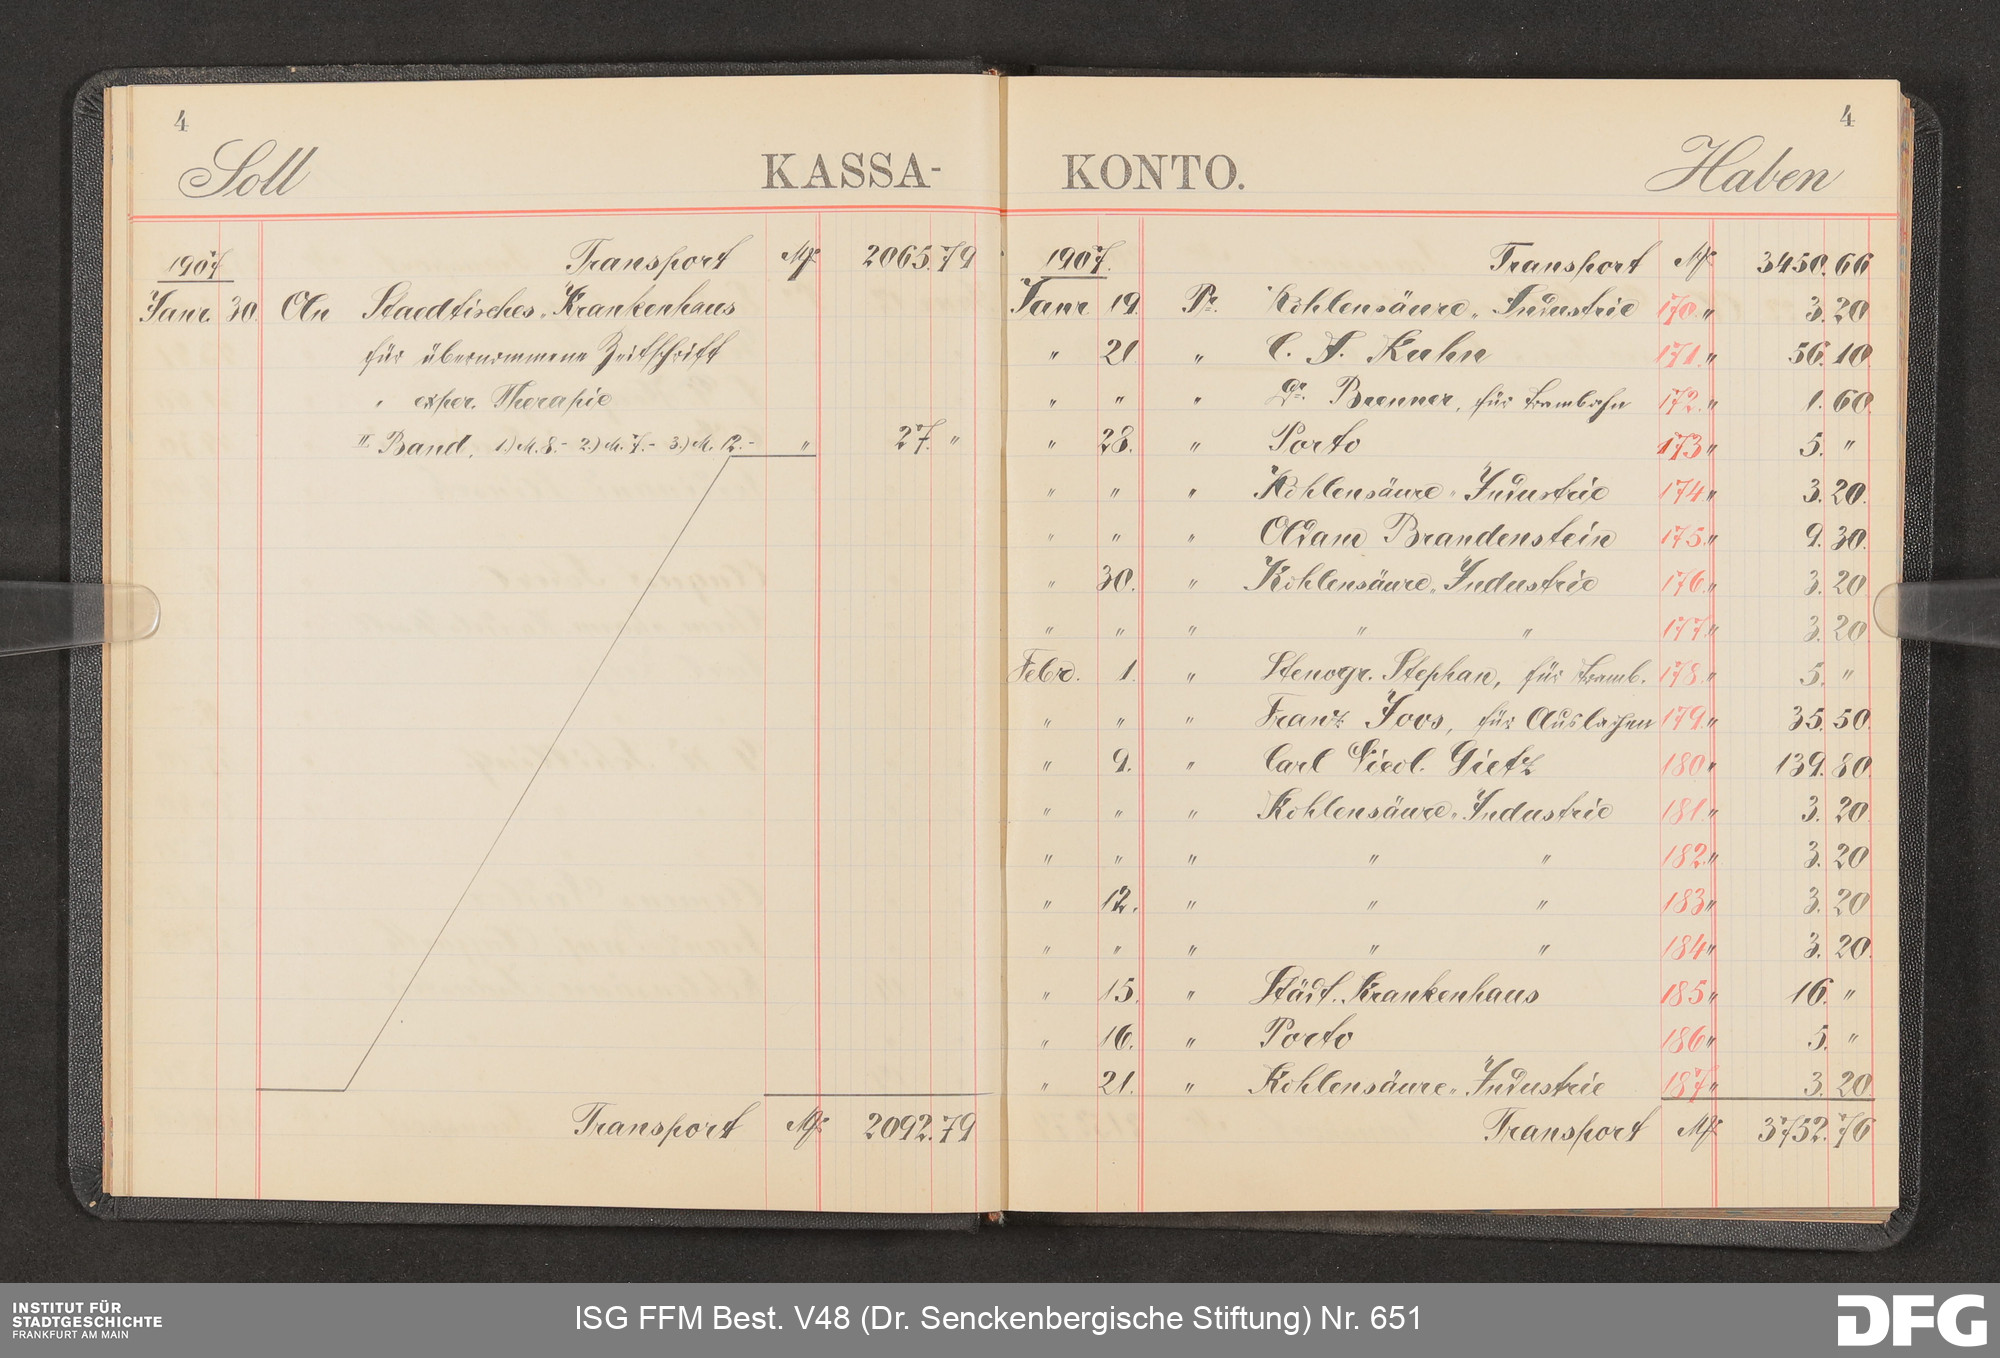 4
Soll KASSA-
1907 Transport M 2065.79
Janr. 30. An Staedtisches Krankenhaus
für übernommene Zeitschrift
" exper. Therapie
II Band. 1.) M. 8.- 2.) M. 7.- 3.) M. 12.- " 27. "
Transport M 2092.79
4
KONTO. Haben
1907. Transport M 3450.66
Janr 19. Pr. Kohlensäure-Industrie 170. " 3.20
" 21 " C. F. Kuhn 171. " 56.10
" " " Dr. Brenner, für Trambahn 172. " 1.60
" 28. " Porto 173 " 5. "
" " " Kohlensäure-Industrie 174 " 3.20.
" " " Adam Brandenstein 175. " 9.30.
" 30. " Kohlensäure-Industrie 176. " 3.20
" " " " " 177. " 3.20
Febr. 1. " Stenogr. Stephan, für Tramb. 178. " 5. "
" " " Frank Joos, für Auslagen 179. " 35.50
" 9. " Carl Gietz 180 " 139.80
" " " Kohlensäure-Industrie 181. " 3.20
" " " " " 182. " 3.20
" 12. " " " 183 " 3.20
" " " " " 184 " 3.20.
" 15. " Städt. Krankenhaus 185 " 16. "
" 16. " Porto 186 " 5. "
" 21. " Kohlensäure-Industrie 187 " 3.20
Transport M 3752.76
INSTITUT FÜR
STADTGESCHICHTE
FRANKFURT AM MAIN
ISG FFM Best. V48 (Dr. Senckenbergische Stiftung) Nr. 651
DFG